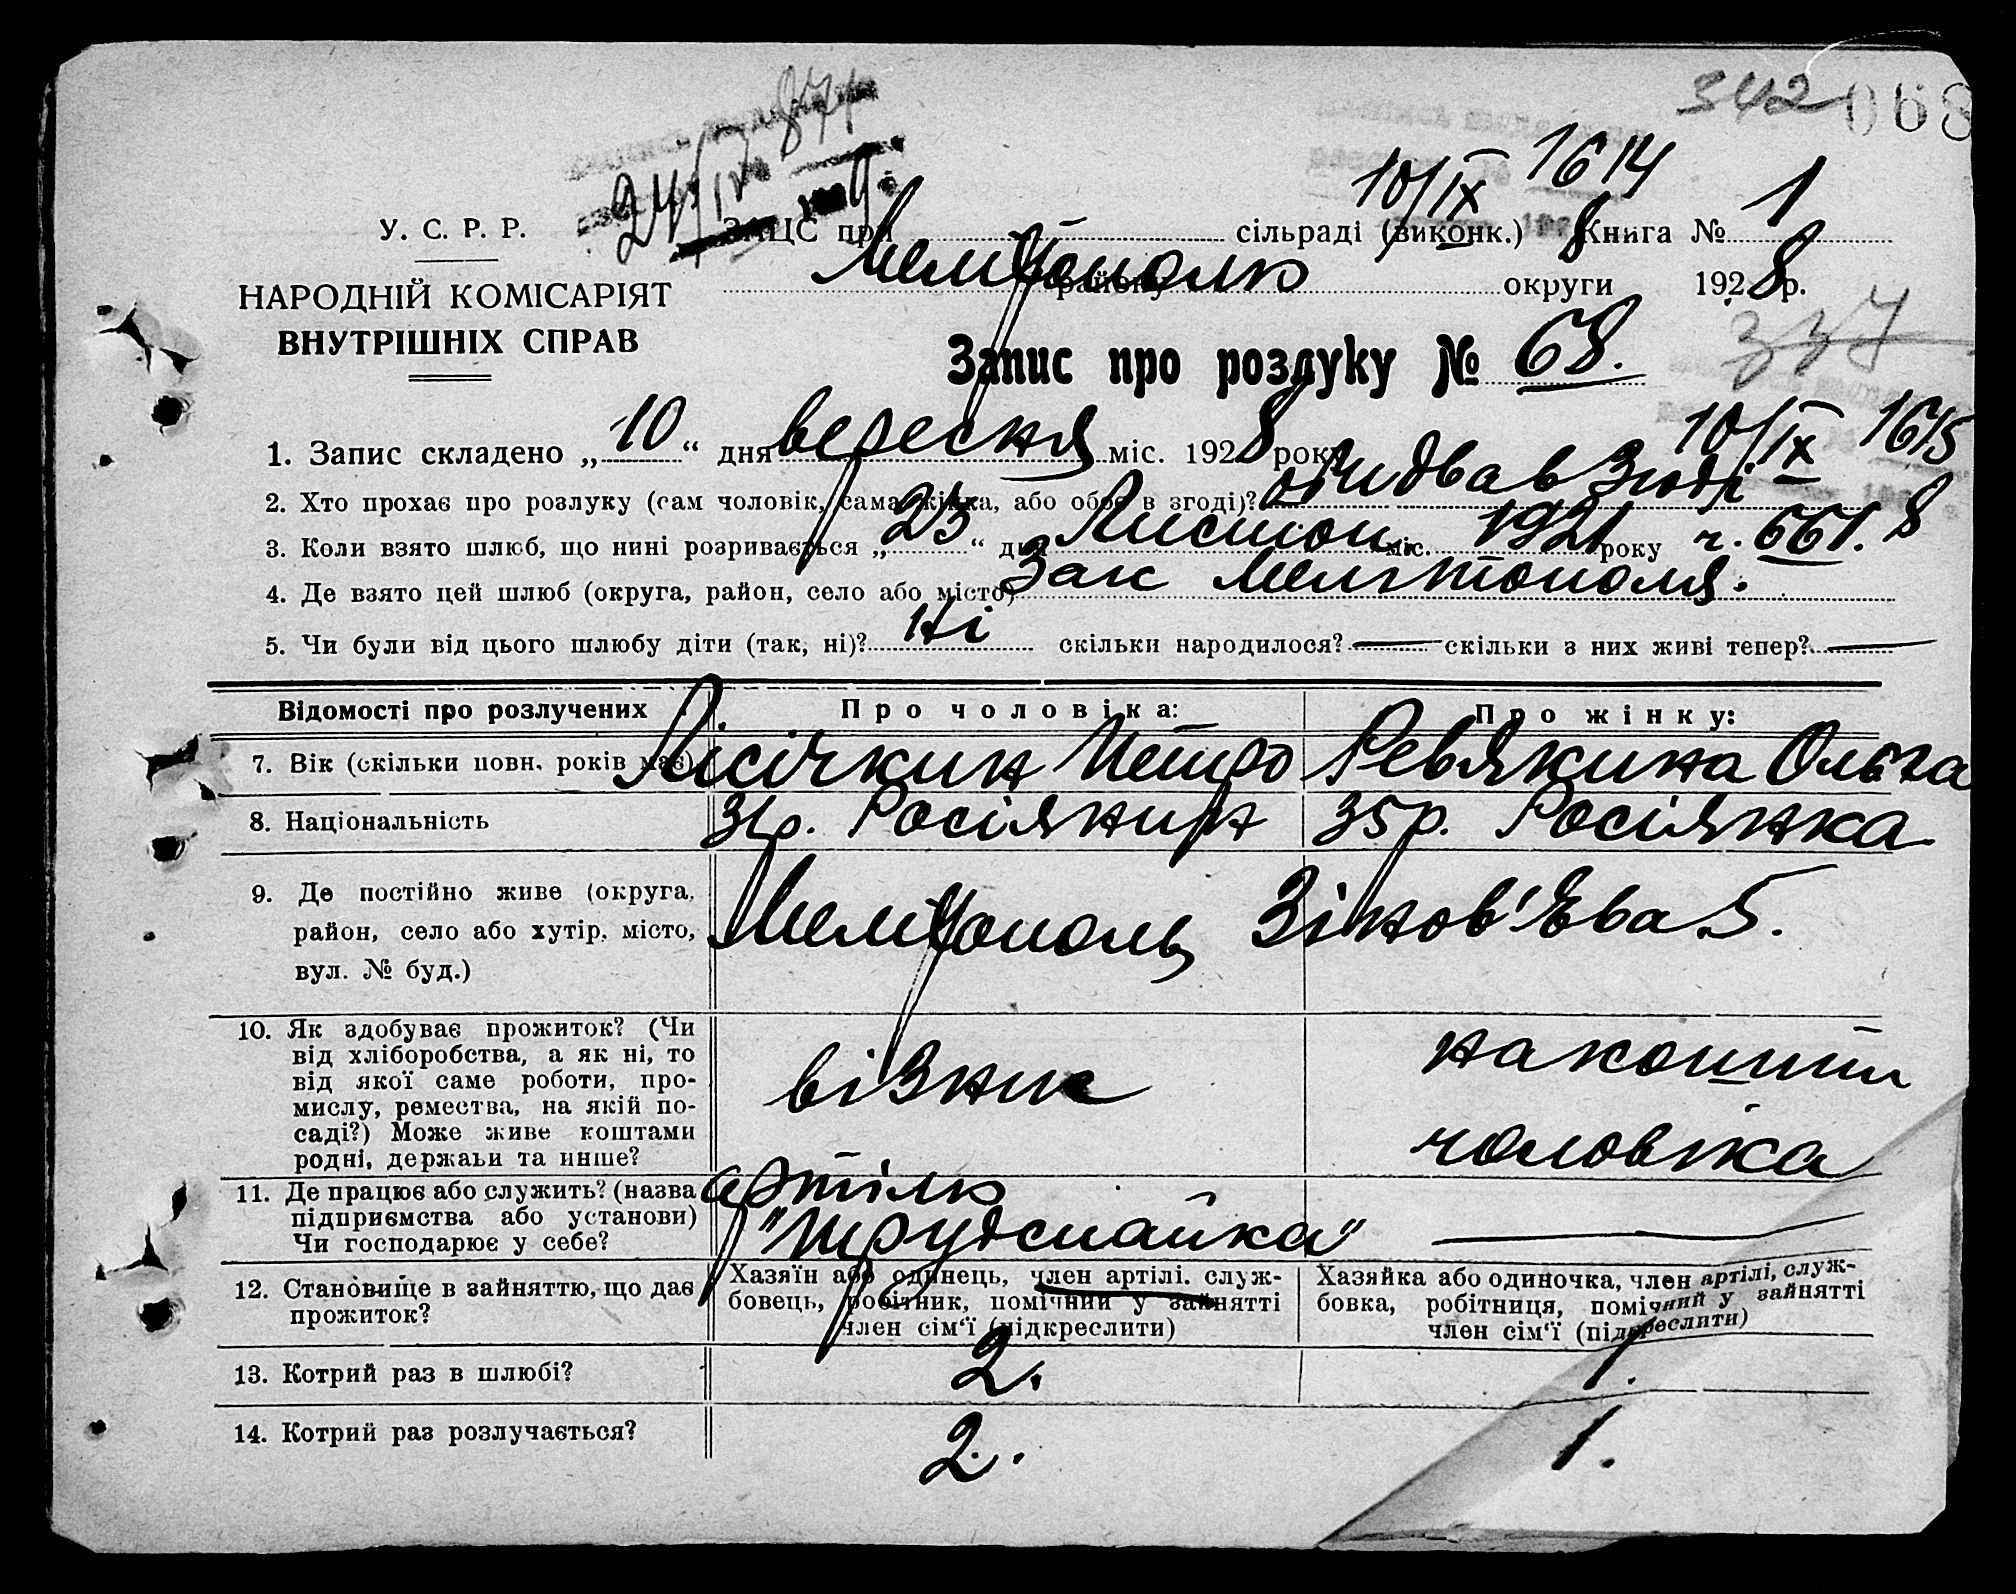 342 068
10/IX 1614
24/IV
У. С. Р. Р.
ЗАЦС при сільраді (виконк.) Книга № 1
НАРОДНІЙ КОМІСАРІЯТ
ВНУТРІШНІХ СПРАВ
Мелітополь району округи 1928 р.
337
Запис про розлуку № 68.
10/IX 1615
1. Запис складено „10“ дня вересня міс. 1928 року
2. Хто прохає про розлуку (сам чоловік, сама жінка, або обоє в згоді)? обидва в згоді
3. Коли взято шлюб, що нині розривається „25“ дня Листоп. міс. 1921 року ч. 661.
4. Де взято цей шлюб (округа, район, село або місто) Заг Мелітополя.
5. Чи були від цього шлюбу діти (так, ні)? Ні скільки народилося? — скільки з них живі тепер? —
Відомості про розлучених Про чоловіка: Про жінку:
Лісічкин Петро Ревякина Ольга
7. Вік (скільки повн. років має)
8. Національність Росіянин 35 р. Росіянка
9. Де постійно живе (округа, район, село або хутір, місто, вул. № буд.)
Мелітополь Зінов'Єва 5.
10. Як здобуває прожиток? (Чи
від хліборобства, а як ні, то
від якої саме роботи, про-
мислу, ремества, на якій по-
саді?) Може живе коштами
родні, держави та инше?
візник
на кошти
чоловіка
11. Де працює або служить? (назва
підприємства або установи)
Чи господарює у себе?
артіль
"Трудспайка" —
12. Становище в зайняттю, що дає
прожиток?
Хазяїн або одинець, член артілі, служ-
бовець, робітник, помічний у зайнятті
член сім‘ї (підкреслити)
Хазяйка або одиночка, член артілі, служ-
бовка, робітниця, помічний у зайнятті
член сім‘ї (підкреслити)
13. Котрий раз в шлюбі? 2. 1.
14. Котрий раз розлучається? 2. 1.